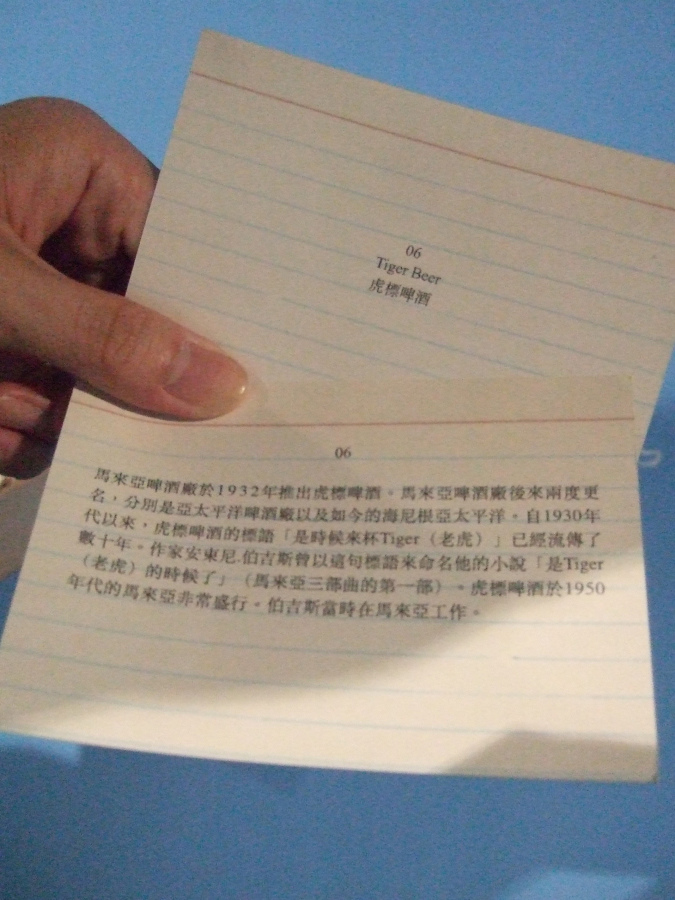 06
Tiger Beer
虎標啤酒
06
馬來亞啤酒廠於1932年推出虎標啤酒。馬來亞啤酒廠後來兩度更
名，分別是亞太平洋啤酒廠以及如今的海尼根亞太平洋。自1930年
代以來，虎標啤酒的標語「是時候來杯Tiger（老虎）」已經流傳了
數十年。作家安東尼.伯吉斯曾以這句標語來命名他的小說「是Tiger
（老虎）的時候了」（馬來亞三部曲的第一部）。虎標啤酒於1950
年代的馬來亞非常盛行。伯吉斯當時在馬來亞工作。